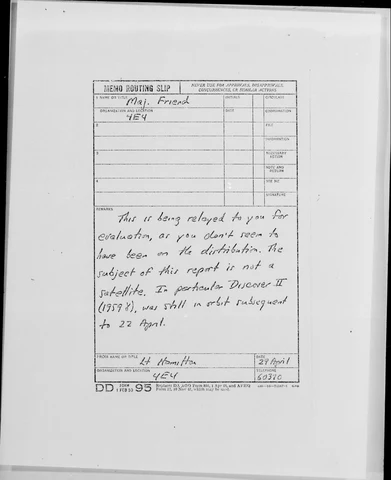 MEMO ROUTING SLIP
NEVER USE FOR APPROVALS, DISAPPROVALS,
CONCURRENCES, OR SIMILAR ACTIONS
1 NAME OR TITLE
Maj. Friend
INITIALS
CIRCULATE
ORGANIZATION AND LOCATION
4E4
DATE
COORDINATION
2
FILE
INFORMATION
3
NECESSARY
ACTION
NOTE AND
RETURN
4
SEE ME
SIGNATURE
REMARKS
This is being relayed to you for
evaluation, as you don't seem to
have been on the distribution. The
subject of this report is not a
satellite. In particular Discover II
(1959 γ), was still in orbit subsequent
to 22 April.
FROM NAME OR TITLE
Lt Hamilton
DATE
29 April
ORGANIZATION AND LOCATION
4E4
TELEPHONE
DD FORM 95
1 FEB 50